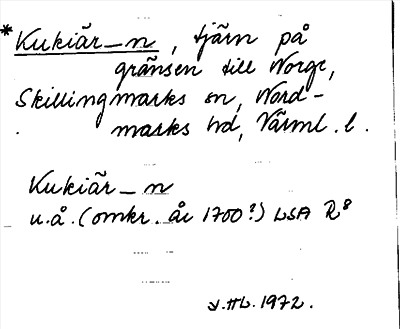 *Kukiär_n, tjärn på
gränsen till Norge,
Skillingmarks sn, Nord-
marks hd, Värml. l.
Kukiär_n
u.å. (omkr. år 1700?) LSA R8
1972.